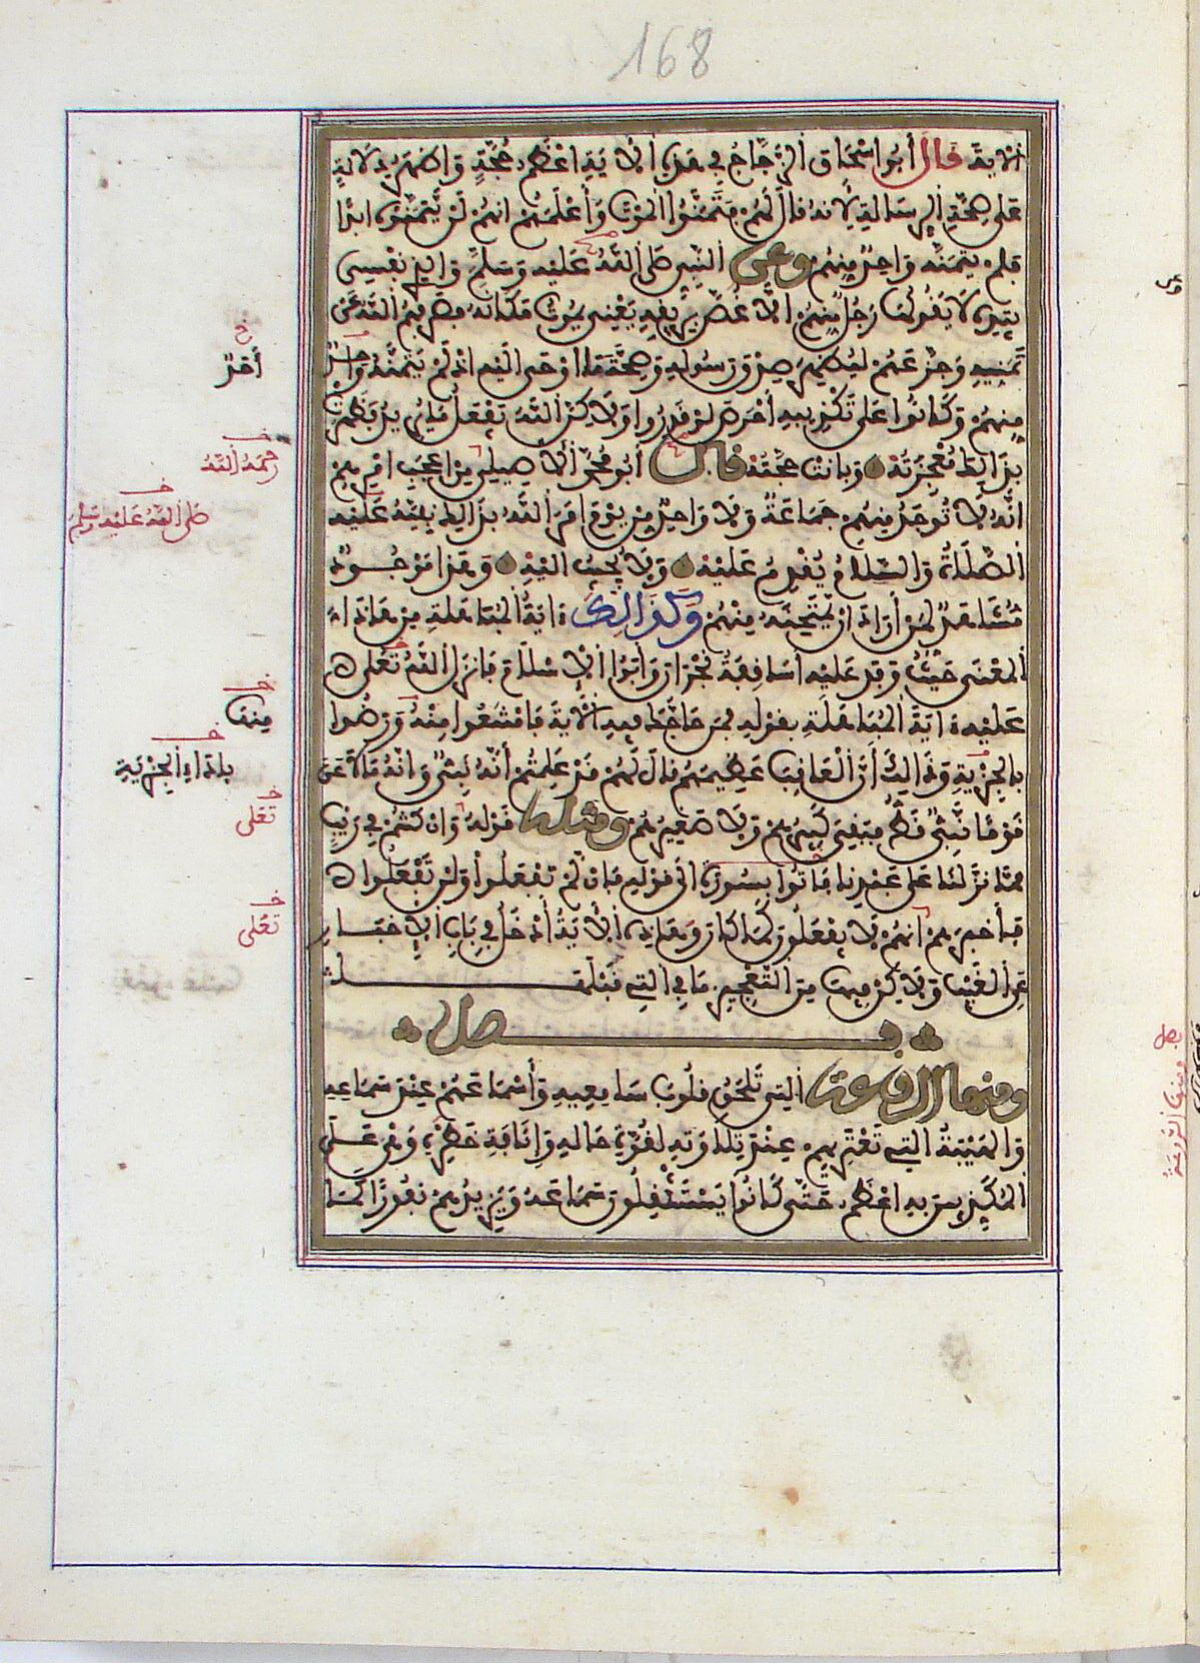 168
الاية قال أبو اسحاق الزجاج في هذه الاية اعظم حجة واظهر دلالة
على صحة الرسالة لأنه قال لهم فتمنوا الموت وأعلمهم انهم لن يتمنوه ابدا
فلم يتمنه واحد منهم وعن النبي صلى الله عليه وسلم والذي نفسي
بيده لا يقولها رجل منهم الا غص بريقه يعني يموت مكانه فصرفهم الله عن
تمنيه وجزعهم ليظهر صدق رسوله وصحة ما اوحى اليه اذ لم يتمنه واحد
منهم وكانوا على تكذيبه احرص لو قدروا ولاكن الله يفعل ما يريد فظهرت
بذالك معجزته وبانت حجته قال أبو محمد الاصيلي من اعجب امرهم
انه لا توجد منهم جماعة ولا واحد من يوم امر الله بذالك نبيه عليه
الصلاة والسلام يقدم عليه ولا يجيب اليه وهذا موجود
مشاهد لمن أراد ان يمتحنه منهم وكذالك ءاية المباهلة من هاذا
المعنى حيث وفد عليه اساقفة نجران وأبوا الاسلام فانزل الله تعلى
عليه ءاية المباهلة بقوله فمن حاجك فيه الاية فامتنعوا منه ورضوا
بالجزية وذالك أن العاقب عظيمهم قال لهم قد علمتم أنه نبي وانه ما لاعن
قوما نبي قط فبقي كبيرهم ولا صغيرهم ومثله قوله وان كنتم في ريب
مما نزلنا على عبدنا فاتوا بسورة الى قوله فان لم تفعلوا ولن تفعلوا
فأخبرهم انهم لا يفعلون كما كان وهاذه الاية أدخل في باب الاخبار
عن الغيب ولاكن فيها من التعجيز ما في التي قبلها
فصل
ومنها الروعة التي تلحق قلوب سامعيه وأسماعهم عند سماعه
والهيبة التي تعتريهم عند تلاوته لقوة حاله وإنافة خطره وهي على
المكذبين به اعظم حتى كانوا يستثقلون سماعه ويزيدهم نفورا كما
أحد
رحمه الله
صلى الله عليه وسلم
منها
باداء الجزية
تعلى
تعلى